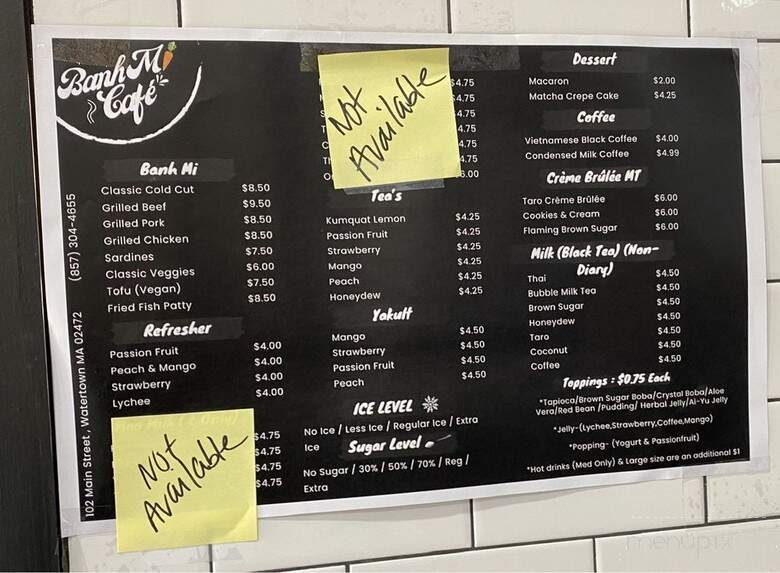 Banh Mi
Café
(857) 304-4655
102 Main Street, Watertown MA 02472
Banh Mi
Classic Cold Cut $8.50
Grilled Beef $9.50
Grilled Pork $8.50
Grilled Chicken $8.50
Sardines $7.50
Classic Veggies $6.00
Tofu (Vegan) $7.50
Fried Fish Patty $8.50
Refresher
Passion Fruit $4.00
Peach & Mango $4.00
Strawberry $4.00
Lychee $4.00
Not
Available
$4.75
$4.75
$4.75
$4.75
Not
Available
$4.75
$4.75
4.75
4.75
4.75
4.75
6.00
Tea's
Kumquat Lemon $4.25
Passion Fruit $4.25
Strawberry $4.25
Mango $4.25
Peach $4.25
Honeydew $4.25
Yakult
Mango $4.50
Strawberry $4.50
Passion Fruit $4.50
Peach $4.50
ICE LEVEL
No Ice / Less Ice / Regular Ice / Extra
Ice
Sugar Level
No Sugar / 30% / 50% / 70% / Reg /
Extra
Dessert
Macaron $2.00
Matcha Crepe Cake $4.25
Coffee
Vietnamese Black Coffee $4.00
Condensed Milk Coffee $4.99
Crème Brûlée MT
Taro Crème Brûlée $6.00
Cookies & Cream $6.00
Flaming Brown Sugar $6.00
Milk (Black Tea) (Non-
Diary)
Thai $4.50
Bubble Milk Tea $4.50
Brown Sugar $4.50
Honeydew $4.50
Taro $4.50
Coconut $4.50
Coffee $4.50
Toppings : $0.75 Each
*Tapioca/Brown Sugar Boba/Crystal Boba/Aloe
Vera/Red Bean /Pudding/ Herbal Jelly/Ai-Yu Jelly
*Jelly-(Lychee,Strawberry,Coffee,Mango)
*Popping- (Yogurt & Passionfruit)
*Hot drinks (Med Only) & Large size are an additional $1
menupix